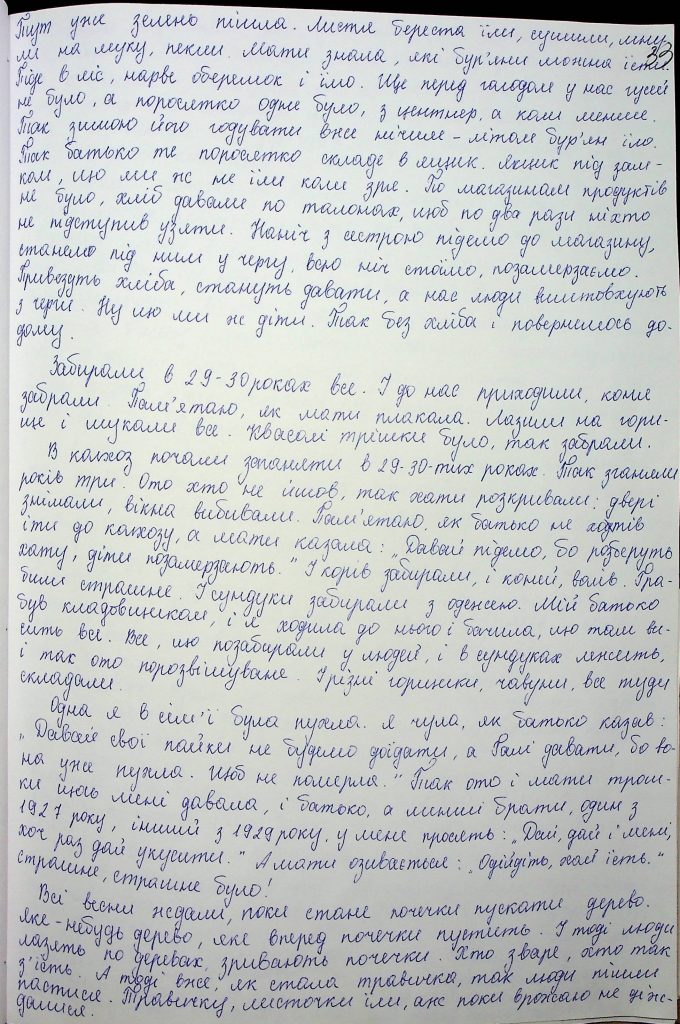 33
Тут уже зелень пішла. Листя береста їли, сушили, мну-
ли на муку, пекли. Мати знала, які бур'яни можна їсти.
Піде в ліс, нарве оберемок і їмо. Ще перед голодом у нас гусей
не було, а поросятко одне було, з центнер, а коли менше.
Так зимою його годувати вже нічим – літом бур'ян їло.
Так батько те поросятко складе в ящик. Ящик під зам-
ком, що ми ж не їли коли зря. По магазинам продуктів
не було, хліб давали по талонах, щоб по два рази ніхто
не підступив узяти. Наніч з сестрою підемо до магазину,
станемо під ним у чергу, всю ніч стоїмо, позамерзаємо.
Привезуть хліба, стануть давати, а нас люди виштовхують
з черги. Ну що ми ж діти. Так без хліба і повернемось до-
дому.
Забирали в 29-30 роках все. І до нас приходили, коня
забрали. Пам'ятаю, як мати плакала. Лазили на гори-
ще і шукали все. Квасолі трішки було, так забрали.
В колхоз почали заганяти в 29-30-тих роках. Так зганяли
років три. Ото хто не йшов, так хати розкривали: двері
знімали, вікна вибивали. Пам'ятаю, як батько не хотів
іти до колхозу, а мати казала: „Давай підемо, бо розберуть
хату, діти позамерзають." І корів забирали, і коней, воли. Гра-
били страшне. І сундуки забирали з одежею. Мій батько
був кладовщиком, і я ходила до нього і бачила, що там ви-
сить все. Все, що позабирали у людей, і в сундуках лежить,
і так ото порозвішуване. І різні горшики, чавуни, все туди
складали.
Одна я в сім'ї була пухла. Я чула, як батько казав:
„Давай свої пайки не будемо доїдати, а Галі давати, бо во-
на уже пухла. Щоб не померла." Так ото і мати трош-
ки щось мені давала, і батько, а менші брати, один з
1927 року, інший з 1929 року, у мене просять: „Дай, дай і мені,
хоч раз дай укусити." А мати озивається: „Одійдіть, хай їсть."
Страшне, страшне було!
Всі весни ждали, поки стане почечки пускати дерево.
Яке-небудь дерево, яке вперед почечки пустить. І тоді люди
лазять по деревах, зривають почечки. Хто зваре, хто так
з'їсть. А тоді вже, як стала травичка, так люди пішли
пастися. Травичку, листочки їли, аж поки врожаю не діж-
далися.